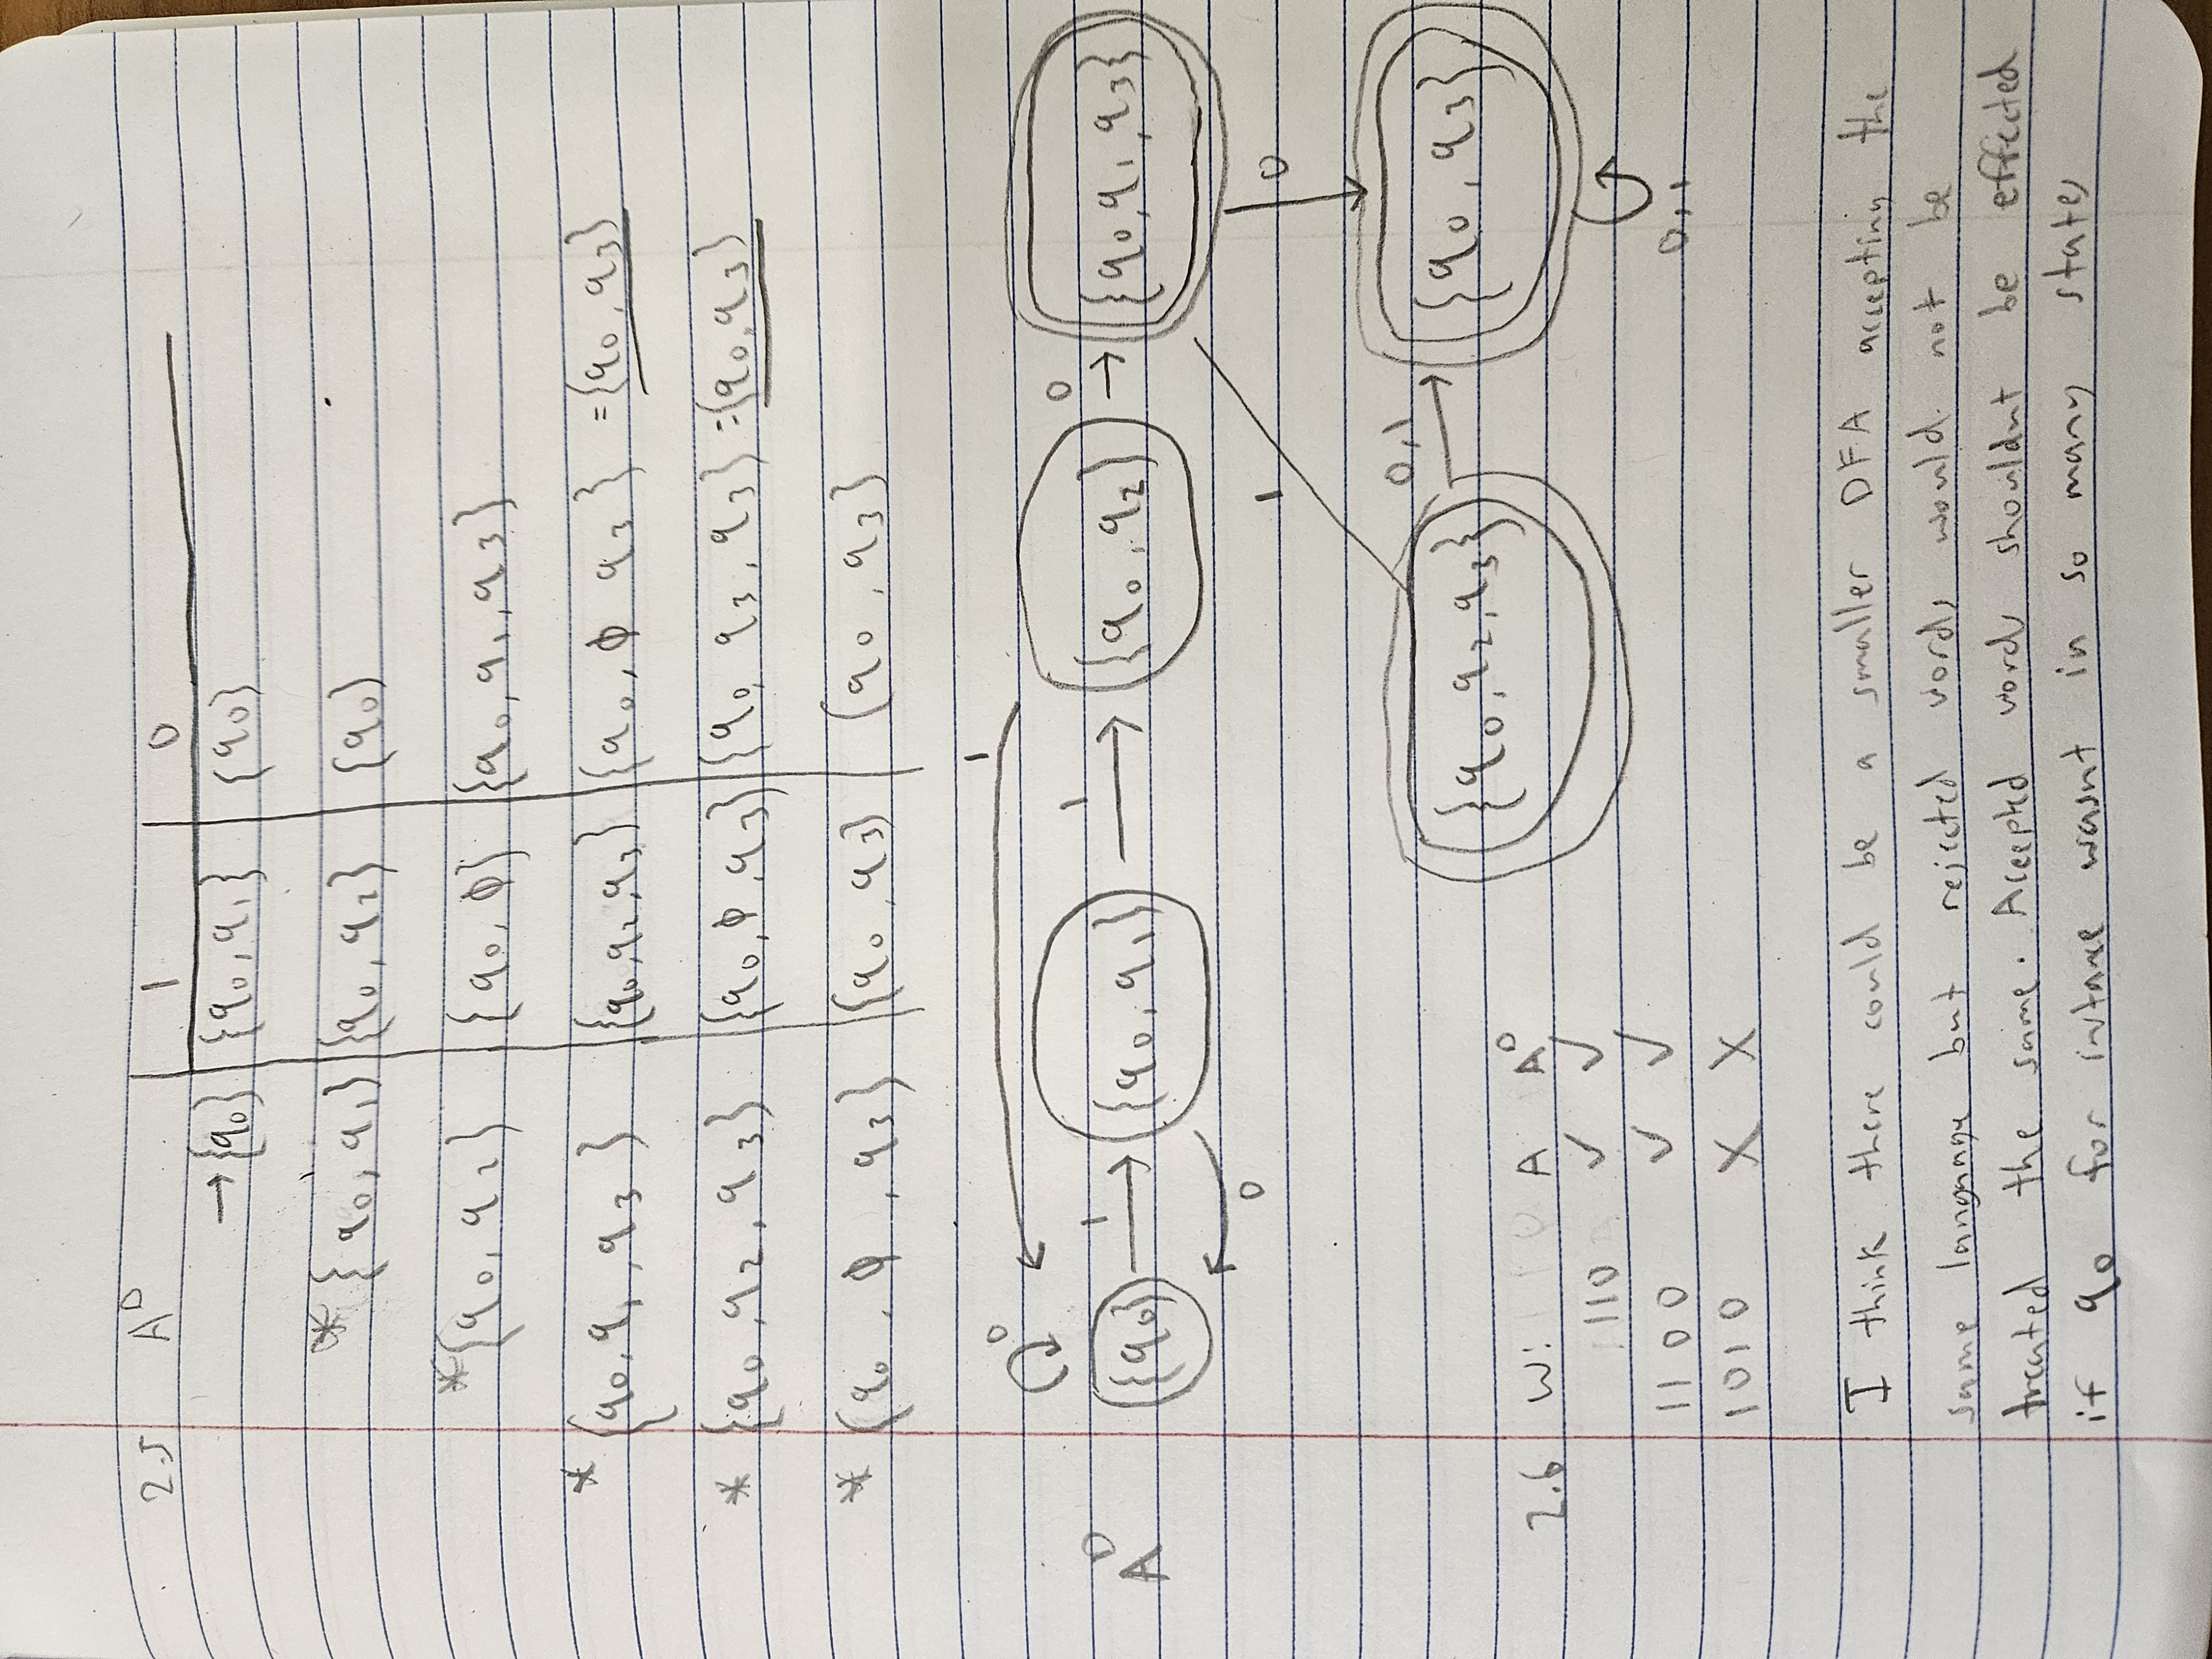 2.5 A^D 1 0
→{q0} {q0, q1} {q0}
* {q0, q1} {q0, q2} {q0}
* {q0, q2} {q0, ϕ} {q0, q1, q3}
* {q0, q1, q3} {q0, q2, q3} {q0, ϕ q3} = {q0, q3}
* {q0, q2, q3} {q0, ϕ, q3} {q0, q3, q3} = {q0, q3}
* {q0, ϕ, q3} {q0, q3} {q0, q3}
0 1
A^D {q0} 1 {q0, q1} 1 {q0, q2} 0 {q0, q1, q3}
0
1 0
{q0, q2, q3} 0,1 {q0, q3}
0,1
2.6 W: A A^D
110 ✓ ✓
1100 ✓ ✓
1010 X X
I think there could be a smaller DFA accepting the
same language but rejected words would not be
treated the same. Accepted words shouldnt be effected
if q0 for intance wasnt in so many states